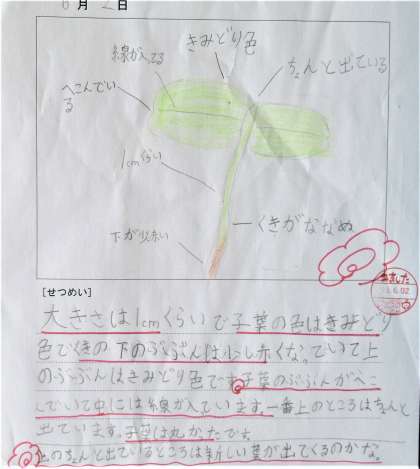 6月2日
きみどり色
線が入ってる
ちょんと出ている
へこんでいる
1cmくらい
くきがななめ
下が少し赤い
みました
6.02
[せつめい]
大きさは1cmくらいで子葉の色はきみどり
色でくきの下のぶぶんは少し赤くなっていて上
のぶぶんはきみどり色です。子葉のぶぶんがへこ
んでいて中には線が入ています。一番上のところはちょんと
出ています。子葉は丸かったです。
のちょんと出ているところは新しい葉が出てくるのかな。